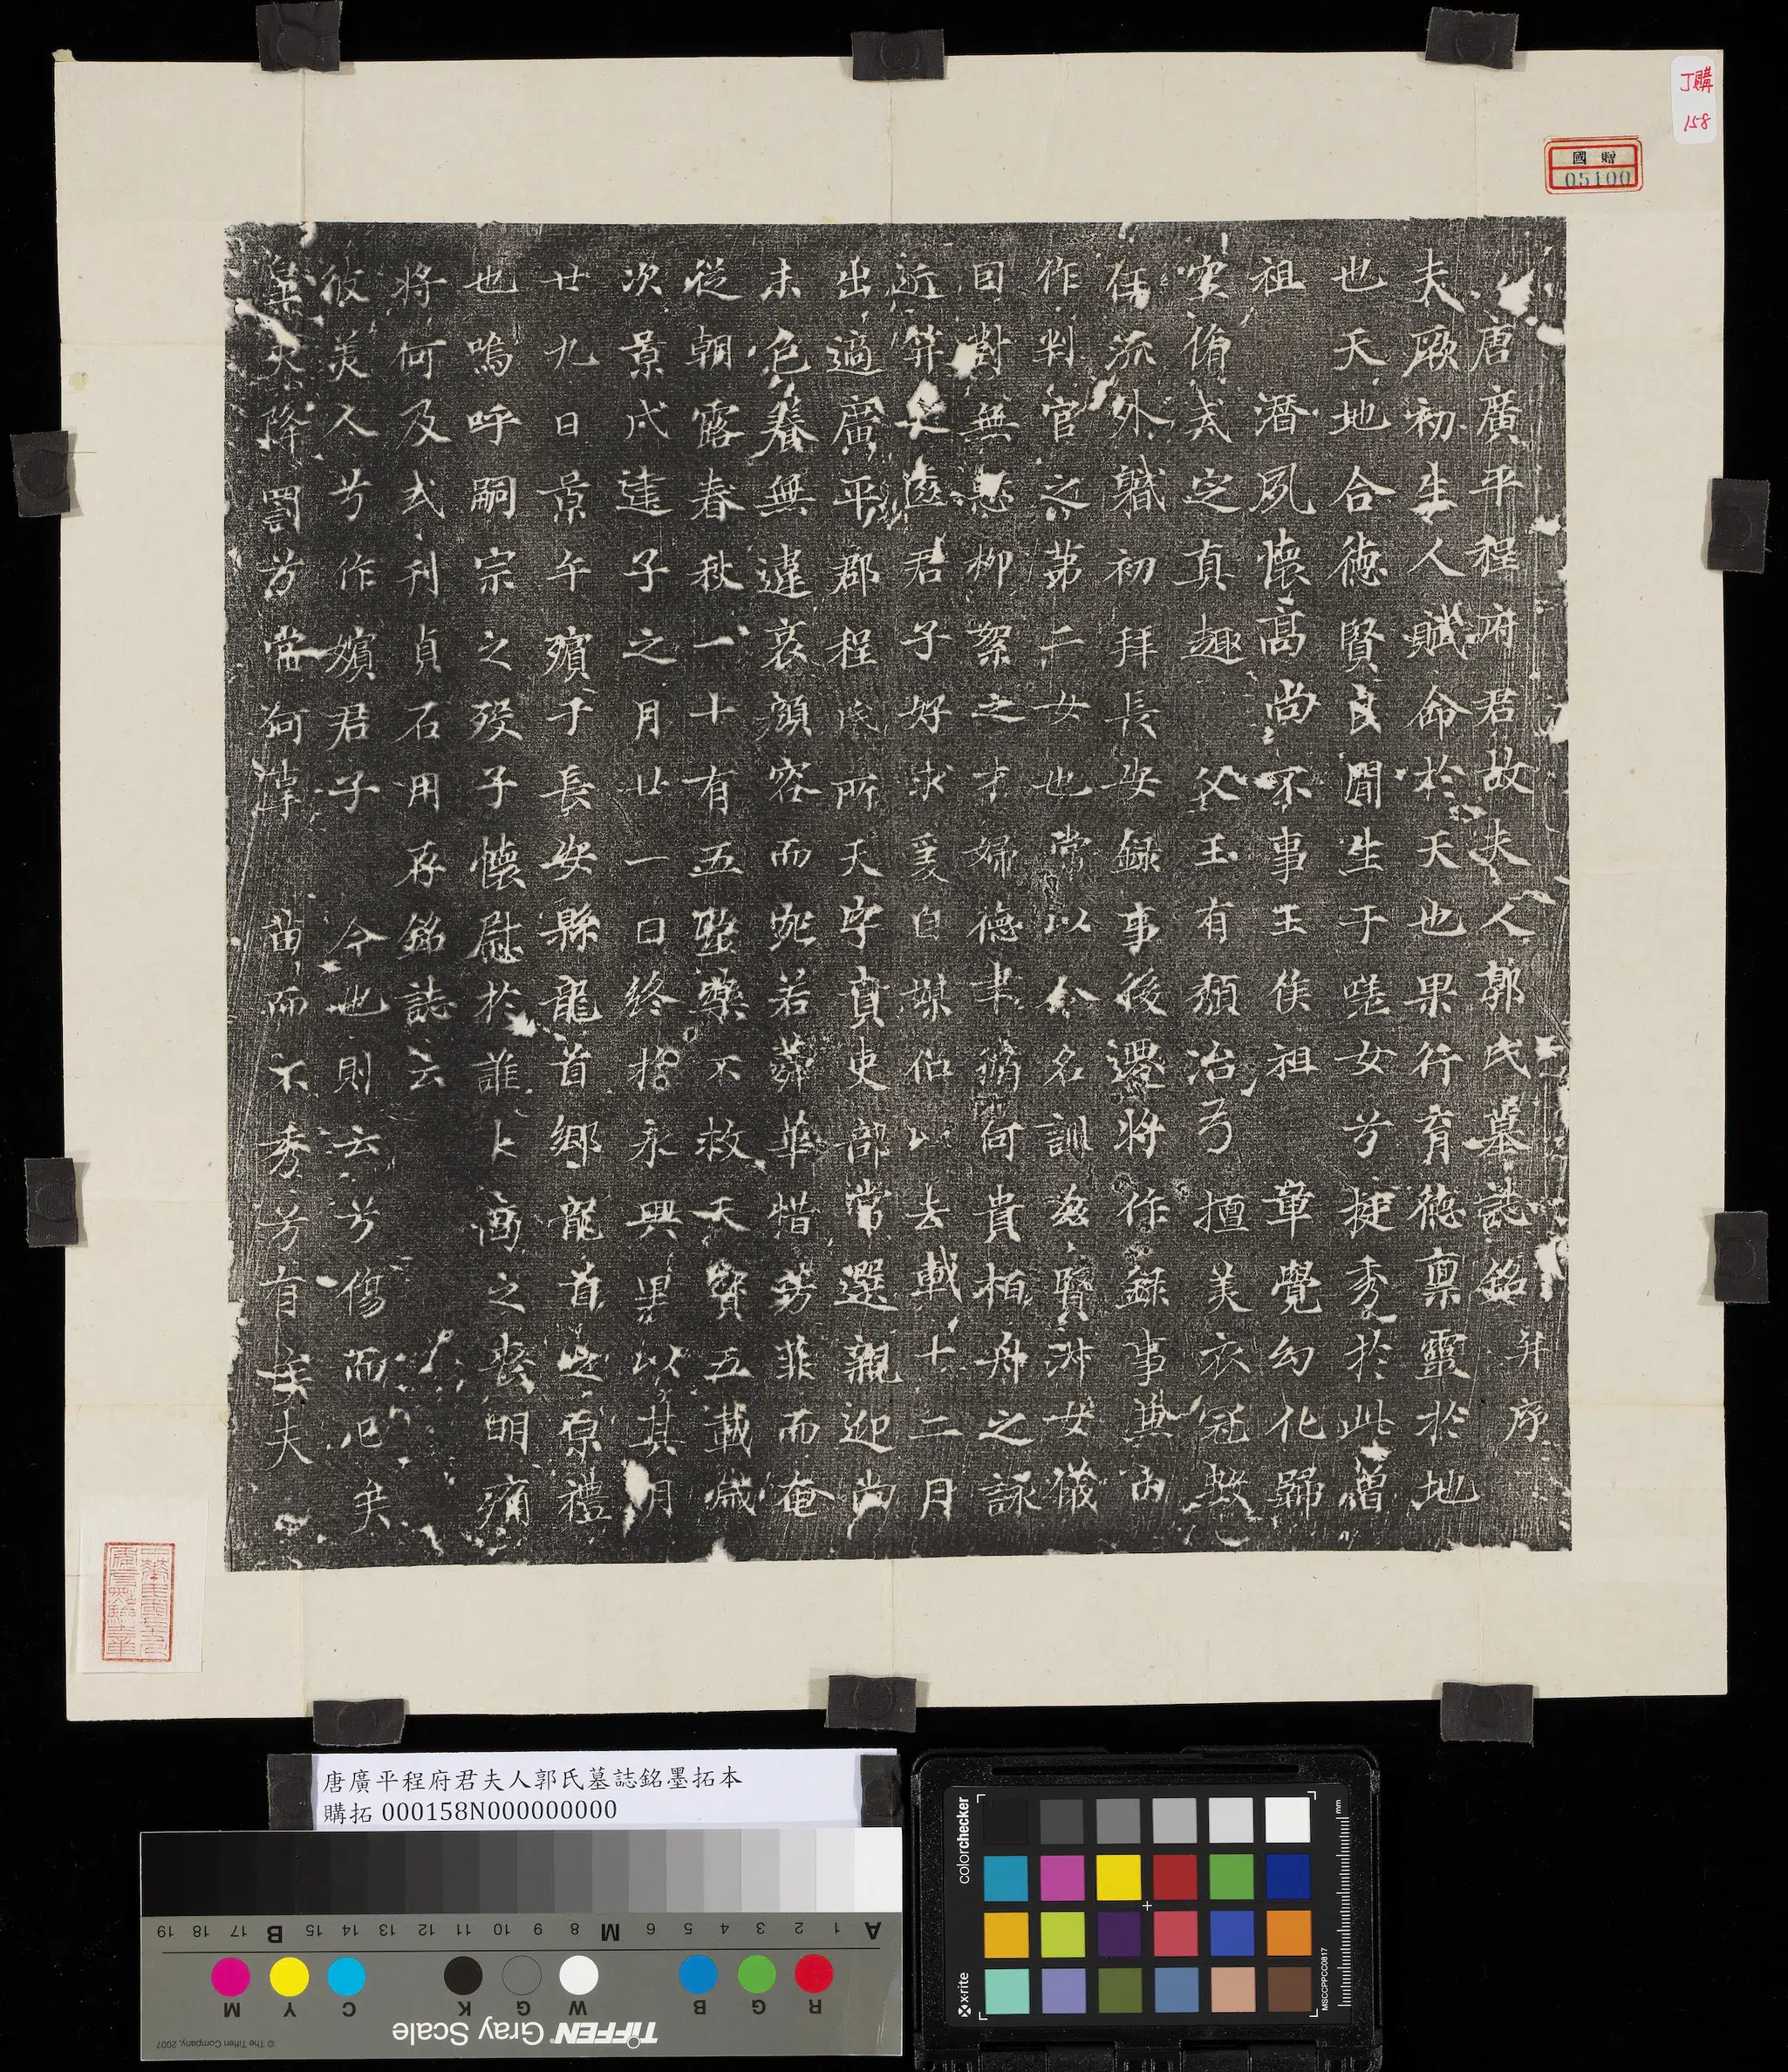 丁購
158
國贈
05100
唐廣平程府君故夫人郭氏墓誌銘并序
夫厥初生人賦命於天也果行育德稟靈於地
也天地合德賢良閒生于嗟女兮挺秀於此曾
祖 潛夙懷高尚不事王侯祖 章覺幻化歸
空脩定之真趣 父玉有頹冶弓 擅美衣冠
任流外職初拜長安錄事後遷將作錄事兼內
作判官之第二女也常以令名訓茲賢淑女儀
目對無愁柳絮之才婦德聿脩何貴柏舟之詠
近笄君子好求爰自媒伯以去載十二月
出適廣平郡程氏所天字賁吏部常選親迎尚
未色養無違哀顏容而婉若蕣華惜芳菲而奄
從朝露春秋一十有五醫藥不救天寶五載歲
次景戌建子之月廿一日終於永興里以其月
廿九日景午殯于長安縣龍首鄉龍首之原禮
也嗚呼嗣宗之歿子懷慰於誰卜商之喪明痛
將何及式刊貞石用存銘誌云
彼美人兮作嬪君子 今也則亡兮傷而已矣
昊天降罰兮當何 苗而不秀兮有矣夫
唐廣平程府君夫人郭氏墓誌銘墨拓本
購拓 000158N000000000
A 1 2 3 4 5 6 M 8 9 10 11 12 13 14 15 B 17 18 19
R G B W G K C Y M
TIFFEN Gray Scale
© The Tiffen Company, 2007
colorchecker
x-rite
mm
MSCCPPCC0817